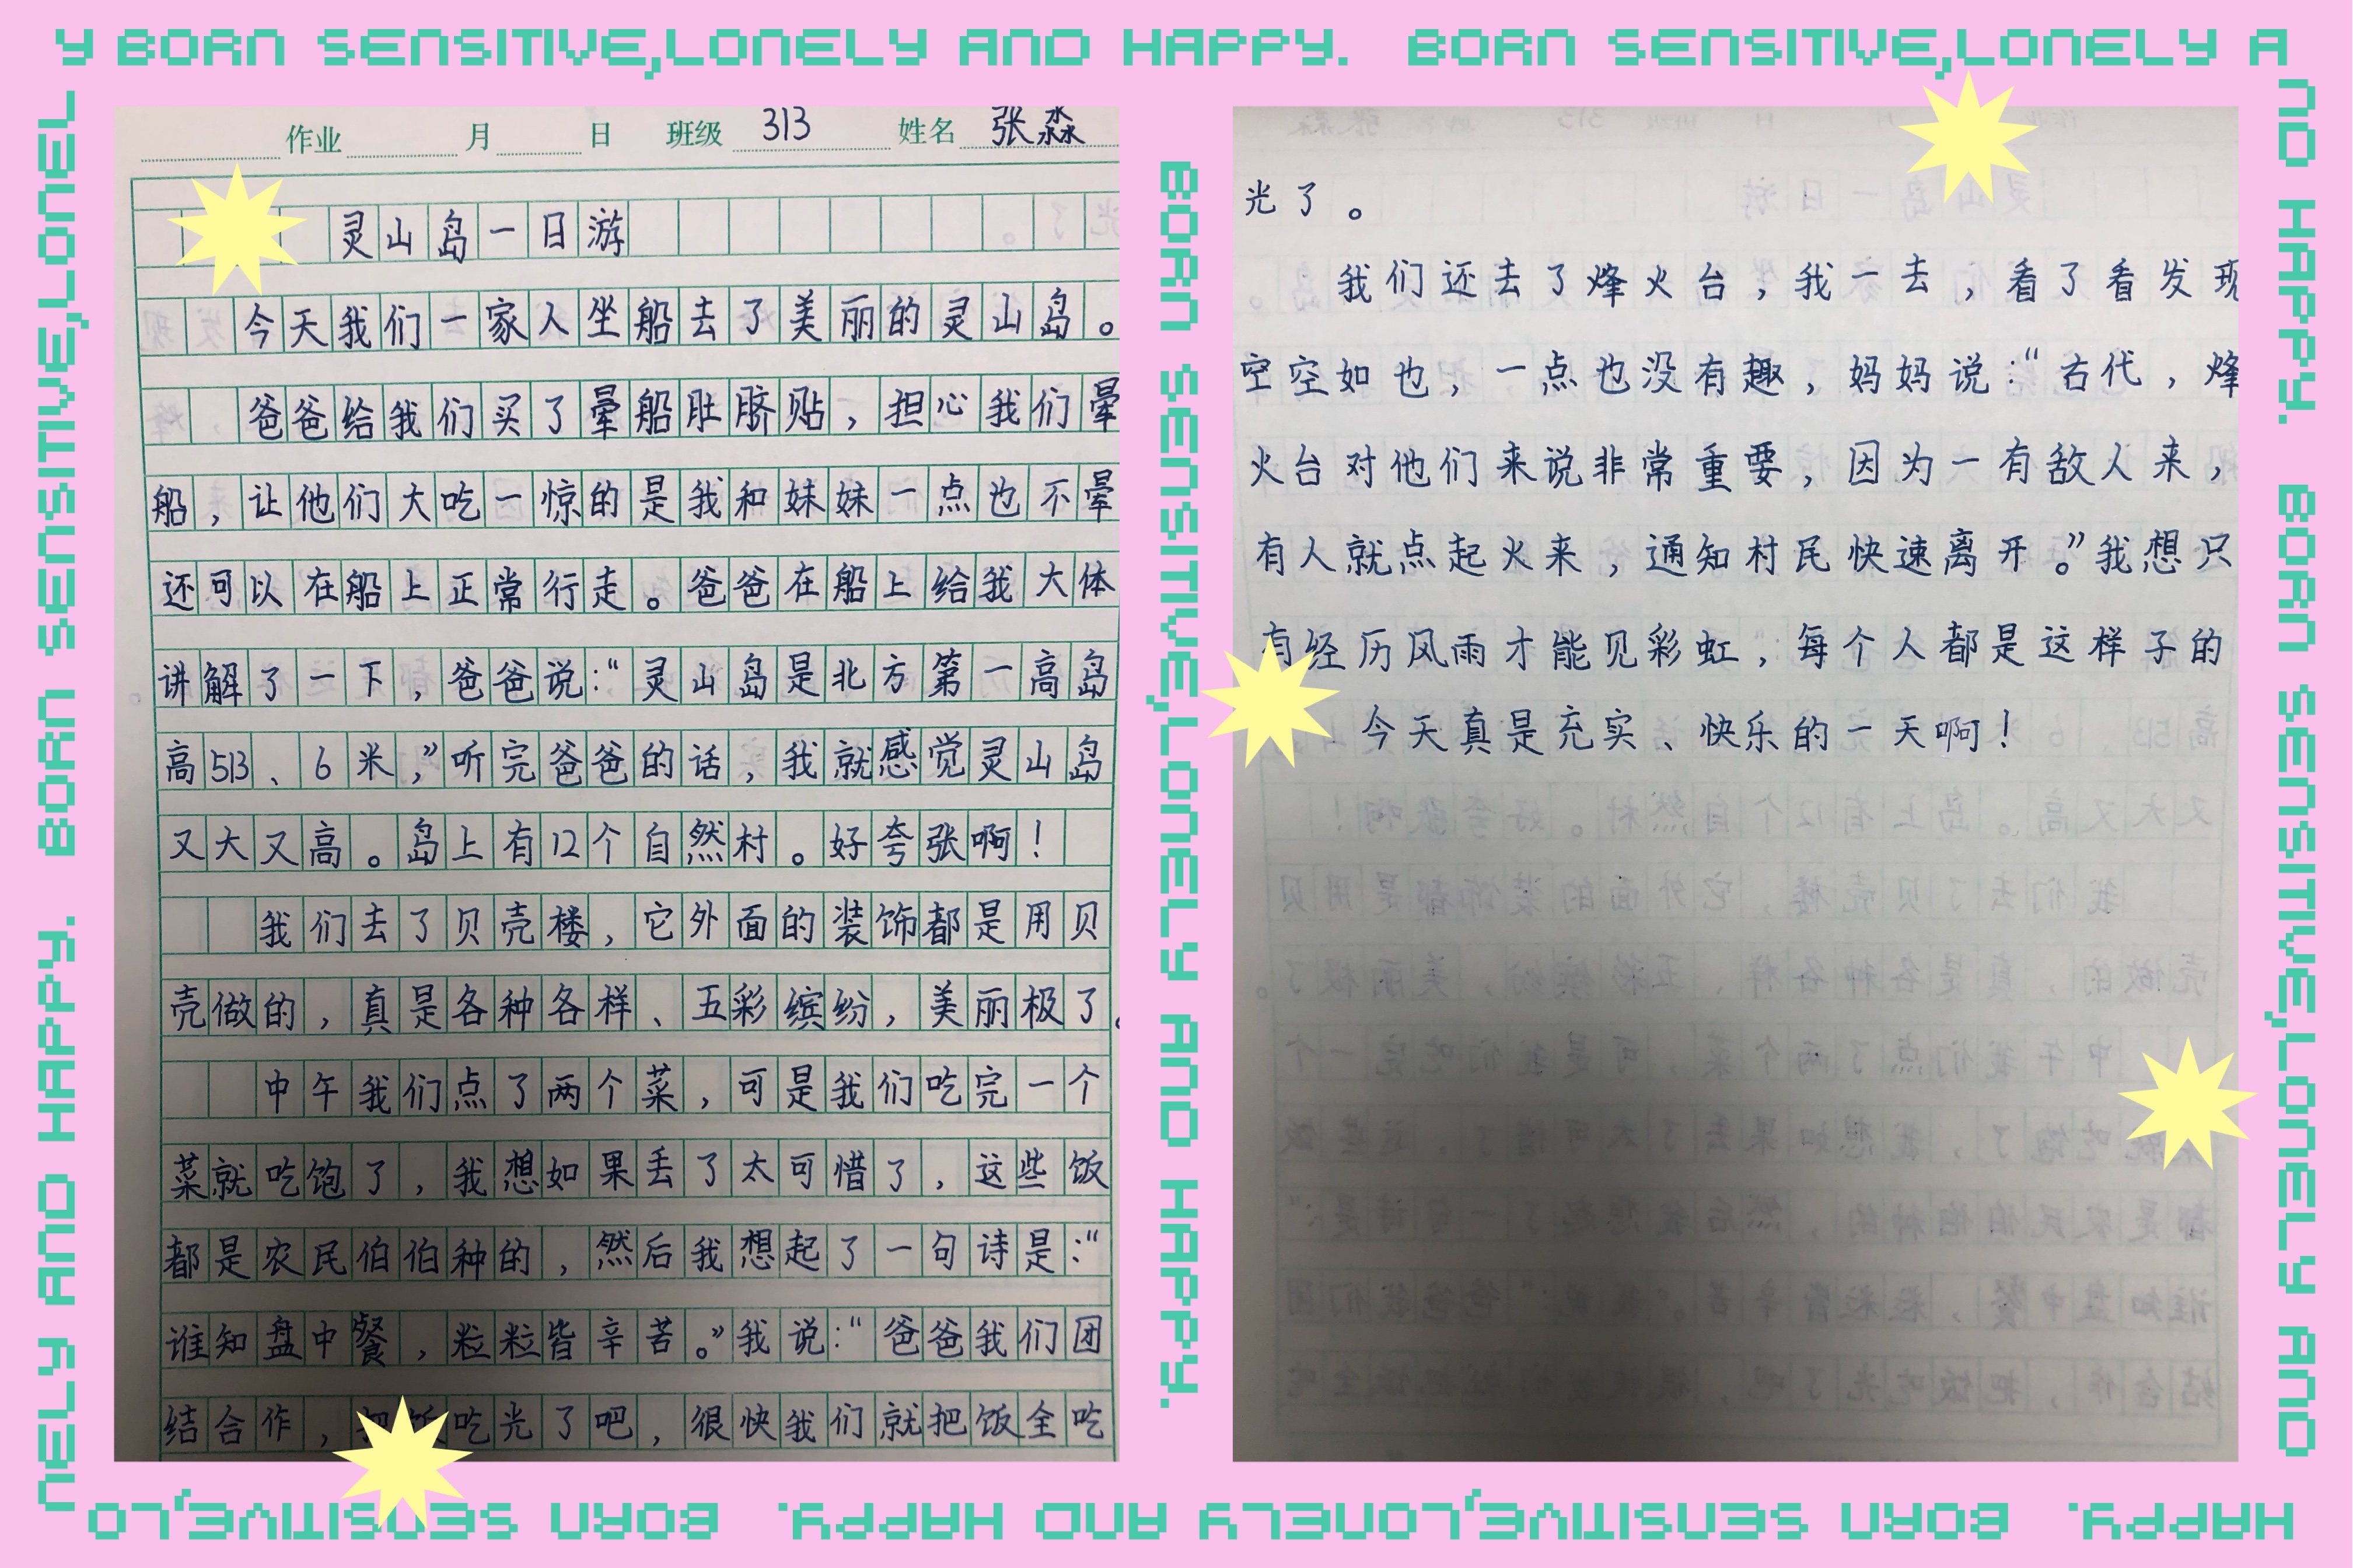 Y BORN SENSITIVE,LONELY AND HAPPY. BORN SENSITIVE,LONELY A
作业 月 日 班级 313 姓名 张淼
灵山岛一日游
今天我们一家人坐船去了美丽的灵山岛。
爸爸给我们买了晕船肚脐贴，担心我们晕
船，让他们大吃一惊的是我和妹妹一点也不晕
还可以在船上正常行走。爸爸在船上给我大体
讲解了一下，爸爸说：“灵山岛是北方第一高岛
高513、6米，”听完爸爸的话，我就感觉灵山岛
又大又高。岛上有12个自然村。好夸张啊！
我们去了贝壳楼，它外面的装饰都是用贝
壳做的，真是各种各样、五彩缤纷，美丽极了。
中午我们点了两个菜，可是我们吃完一个
菜就吃饱了，我想如果丢了太可惜了，这些饭
都是农民伯伯种的，然后我想起了一句诗是：“
谁知盘中餐，粒粒皆辛苦。”我说：“爸爸我们团
结合作，把饭吃光了吧，很快我们就把饭全吃
光了。
我们还去了烽火台，我一去，看了看发现
空空如也，一点也没有趣，妈妈说：“古代，烽
火台对他们来说非常重要，因为一有敌人来，
有人就点起火来，通知村民快速离开。”我想只
有经历风雨才能见彩虹，每个人都是这样子的
今天真是充实、快乐的一天啊！
NELY AND HAPPY. BORN SENSITIVE,LONEL
BORN SENSITIVE,LONELY AND HAPPY.
ND HAPPY. BORN SENSITIVE,LONELY AND
HAPPY. BORN SENSITIVE,LONELY AND HAPPY. BORN SENSITIVE,LO